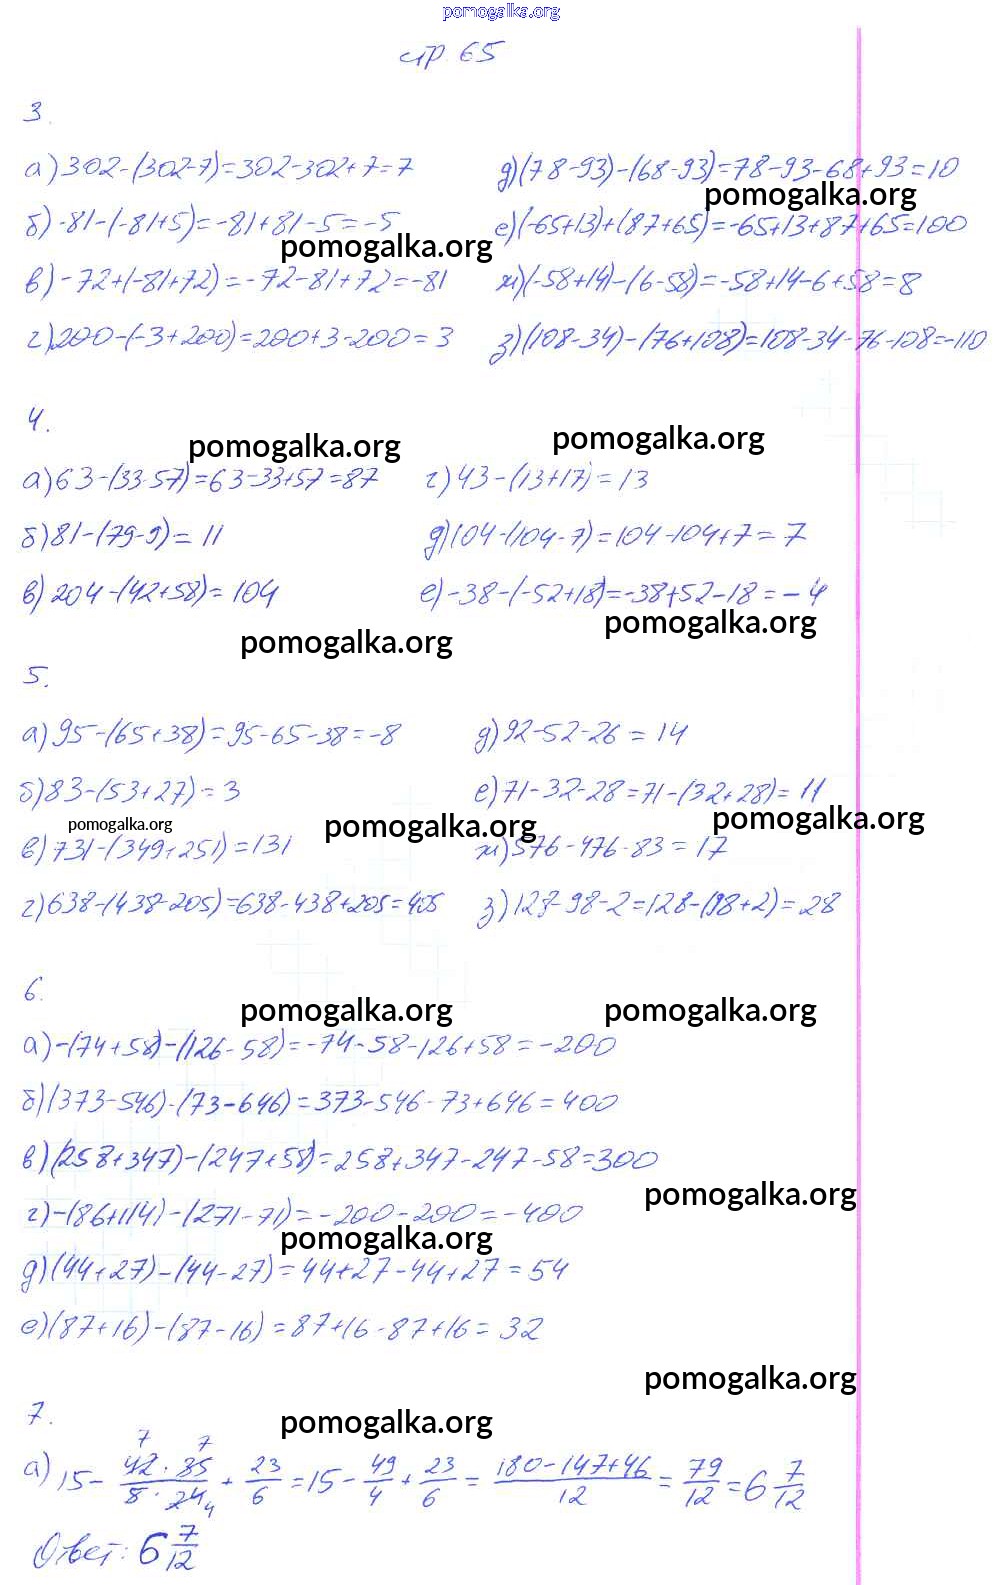 pomogalka.org
стр. 65
3.
а) 302-(302-7)=302-302+7=7
д) (78-93)-(68-93)=78-93-68+93=10
pomogalka.org
б) -81-(-81+5)=-81+81-5=-5
е) (-65+13)+(87+65)=-65+13+87+65=100
pomogalka.org
в) -72+(-81+72)=-72-81+72=-81
ж) (-58+14)-(6-58)=-58+14-6+58=8
г) 200-(-3+200)=200+3-200=3
з) (108-34)-(76+108)=108-34-76-108=-110
4.
pomogalka.org
pomogalka.org
а) 63-(33-57)=63-33+57=87
г) 43-(13+17)=13
б) 81-(79-9)=11
д) 104-(104-7)=104-104+7=7
в) 204-(42+58)=104
е) -38-(-52+18)=-38+52-18=-4
pomogalka.org
pomogalka.org
5.
а) 95-(65+38)=95-65-38=-8
д) 92-52-26=14
б) 83-(53+27)=3
е) 71-32-28=71-(32+28)=11
pomogalka.org
pomogalka.org
pomogalka.org
в) 731-(349+251)=131
ж) 576-476-83=17
г) 638-(438-205)=638-438+205=405
з) 128-98-2=128-(98+2)=28
6.
pomogalka.org
pomogalka.org
а) -(74+58)-(126-58)=-74-58-126+58=-200
б) (373-546)-(73-646)=373-546-73+646=400
в) (258+347)-(247+58)=258+347-247-58=300
pomogalka.org
г) -(86+114)-(271-71)=-200-200=-400
pomogalka.org
д) (44+27)-(44-27)=44+27-44+27=54
е) (87+16)-(87-16)=87+16-87+16=32
pomogalka.org
7.
pomogalka.org
7 7
а) 15 - 42·35/8·24 4 + 23/6 = 15 - 49/4 + 23/6 = 180-147+46/12 = 79/12 = 6 7/12
Ответ: 6 7/12